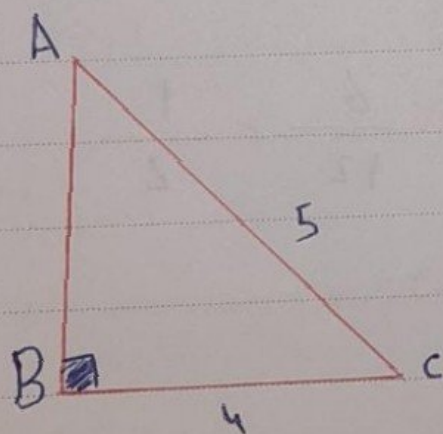 A
5
B
C
4